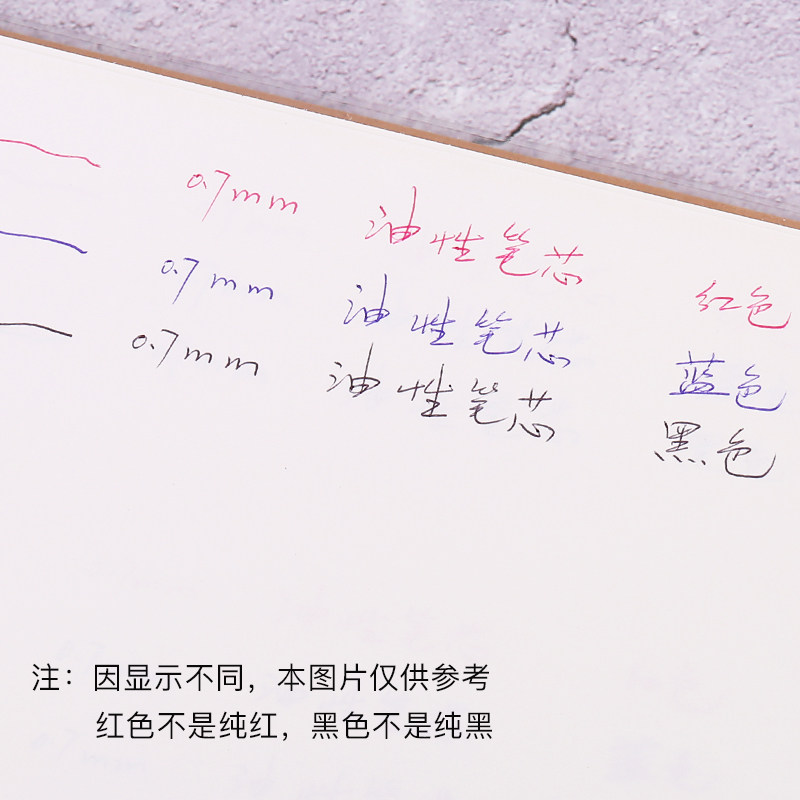 0.7mm 油性笔芯 红色
0.7mm 油性笔芯 蓝色
0.7mm 油性笔芯 黑色
注：因显示不同，本图片仅供参考
红色不是纯红，黑色不是纯黑